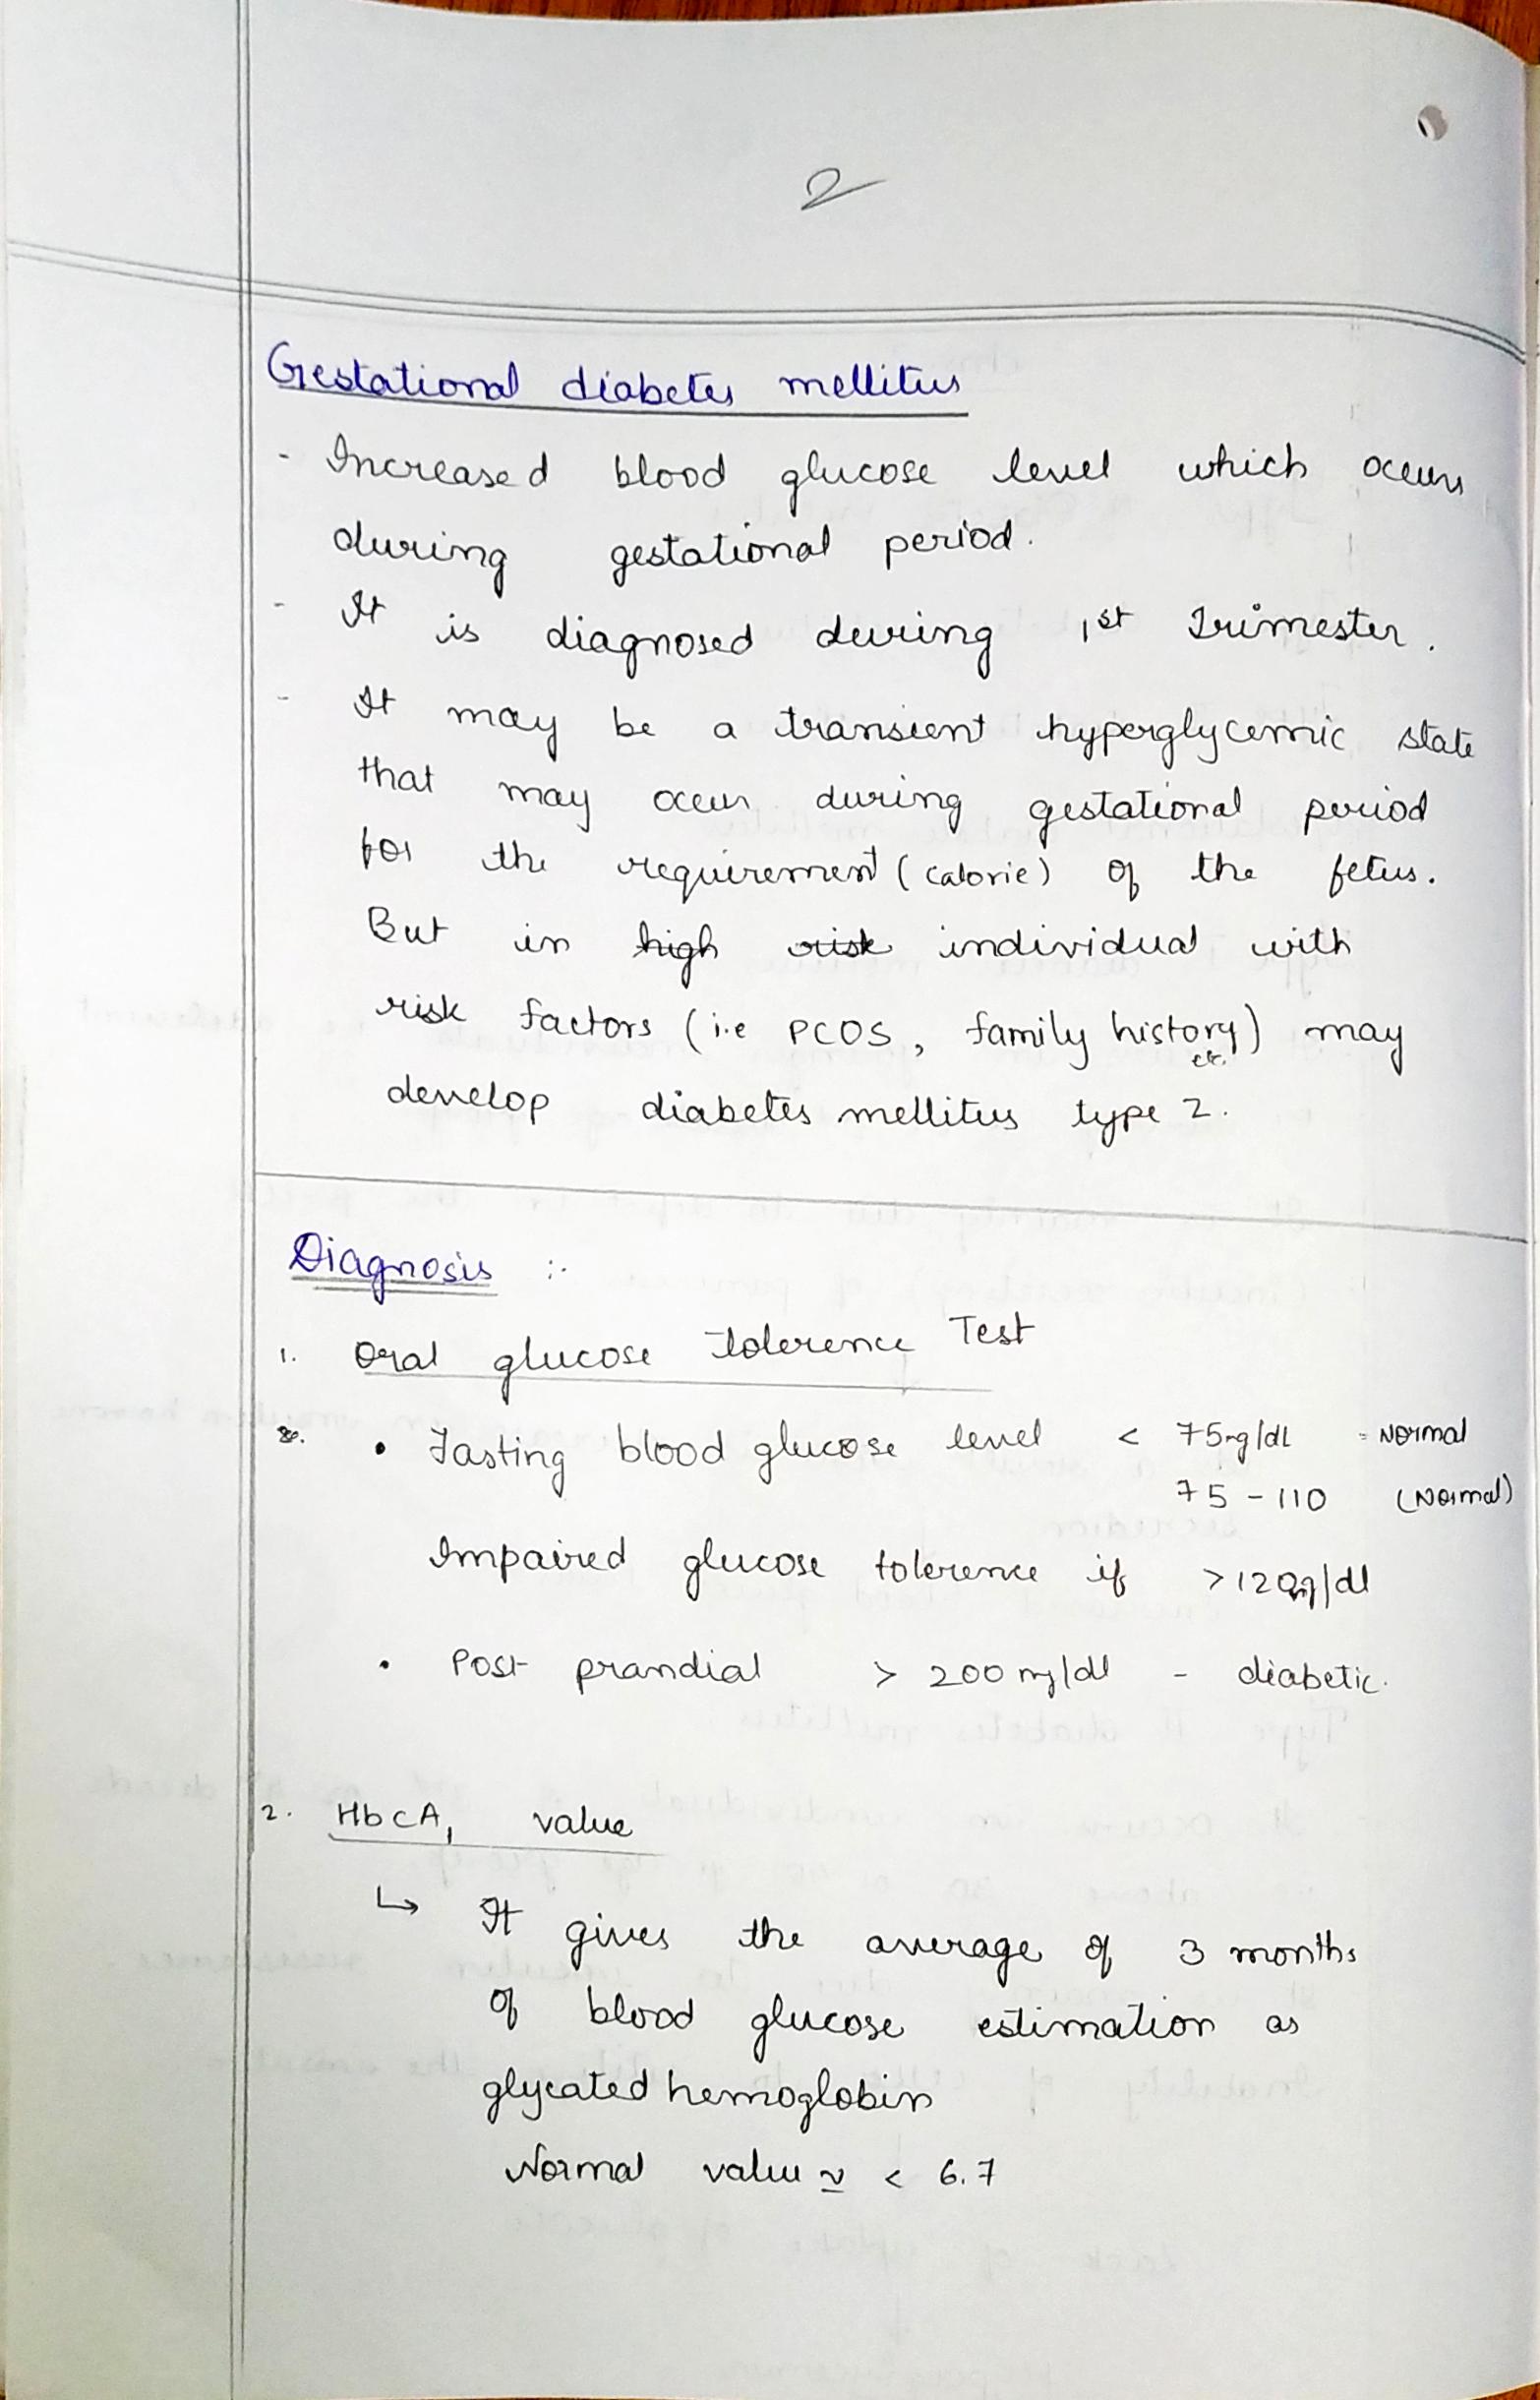 2
Gestational diabetes mellitus
- Increased blood glucose level which occurs
during gestational period.
- It is diagnosed during 1st Trimester.
- It may be a transient hyperglycemic state
that may occur during gestational period
for the requirement (calorie) of the fetus.
But in high risk individual with
risk factors (i.e PCOS, family history etc.) may
develop diabetes mellitus type 2.
Diagnosis :-
1. Oral glucose Tolerence Test
• Fasting blood glucose level < 75mg/dL = Normal
75 - 110 (Normal)
Impaired glucose tolerence if >120mg/dl
• Post prandial > 200 mg/dl - diabetic.
2. HbcA1 value
↳ It gives the average of 3 months
of blood glucose estimation as
glycated hemoglobin
Normal value < 6.7